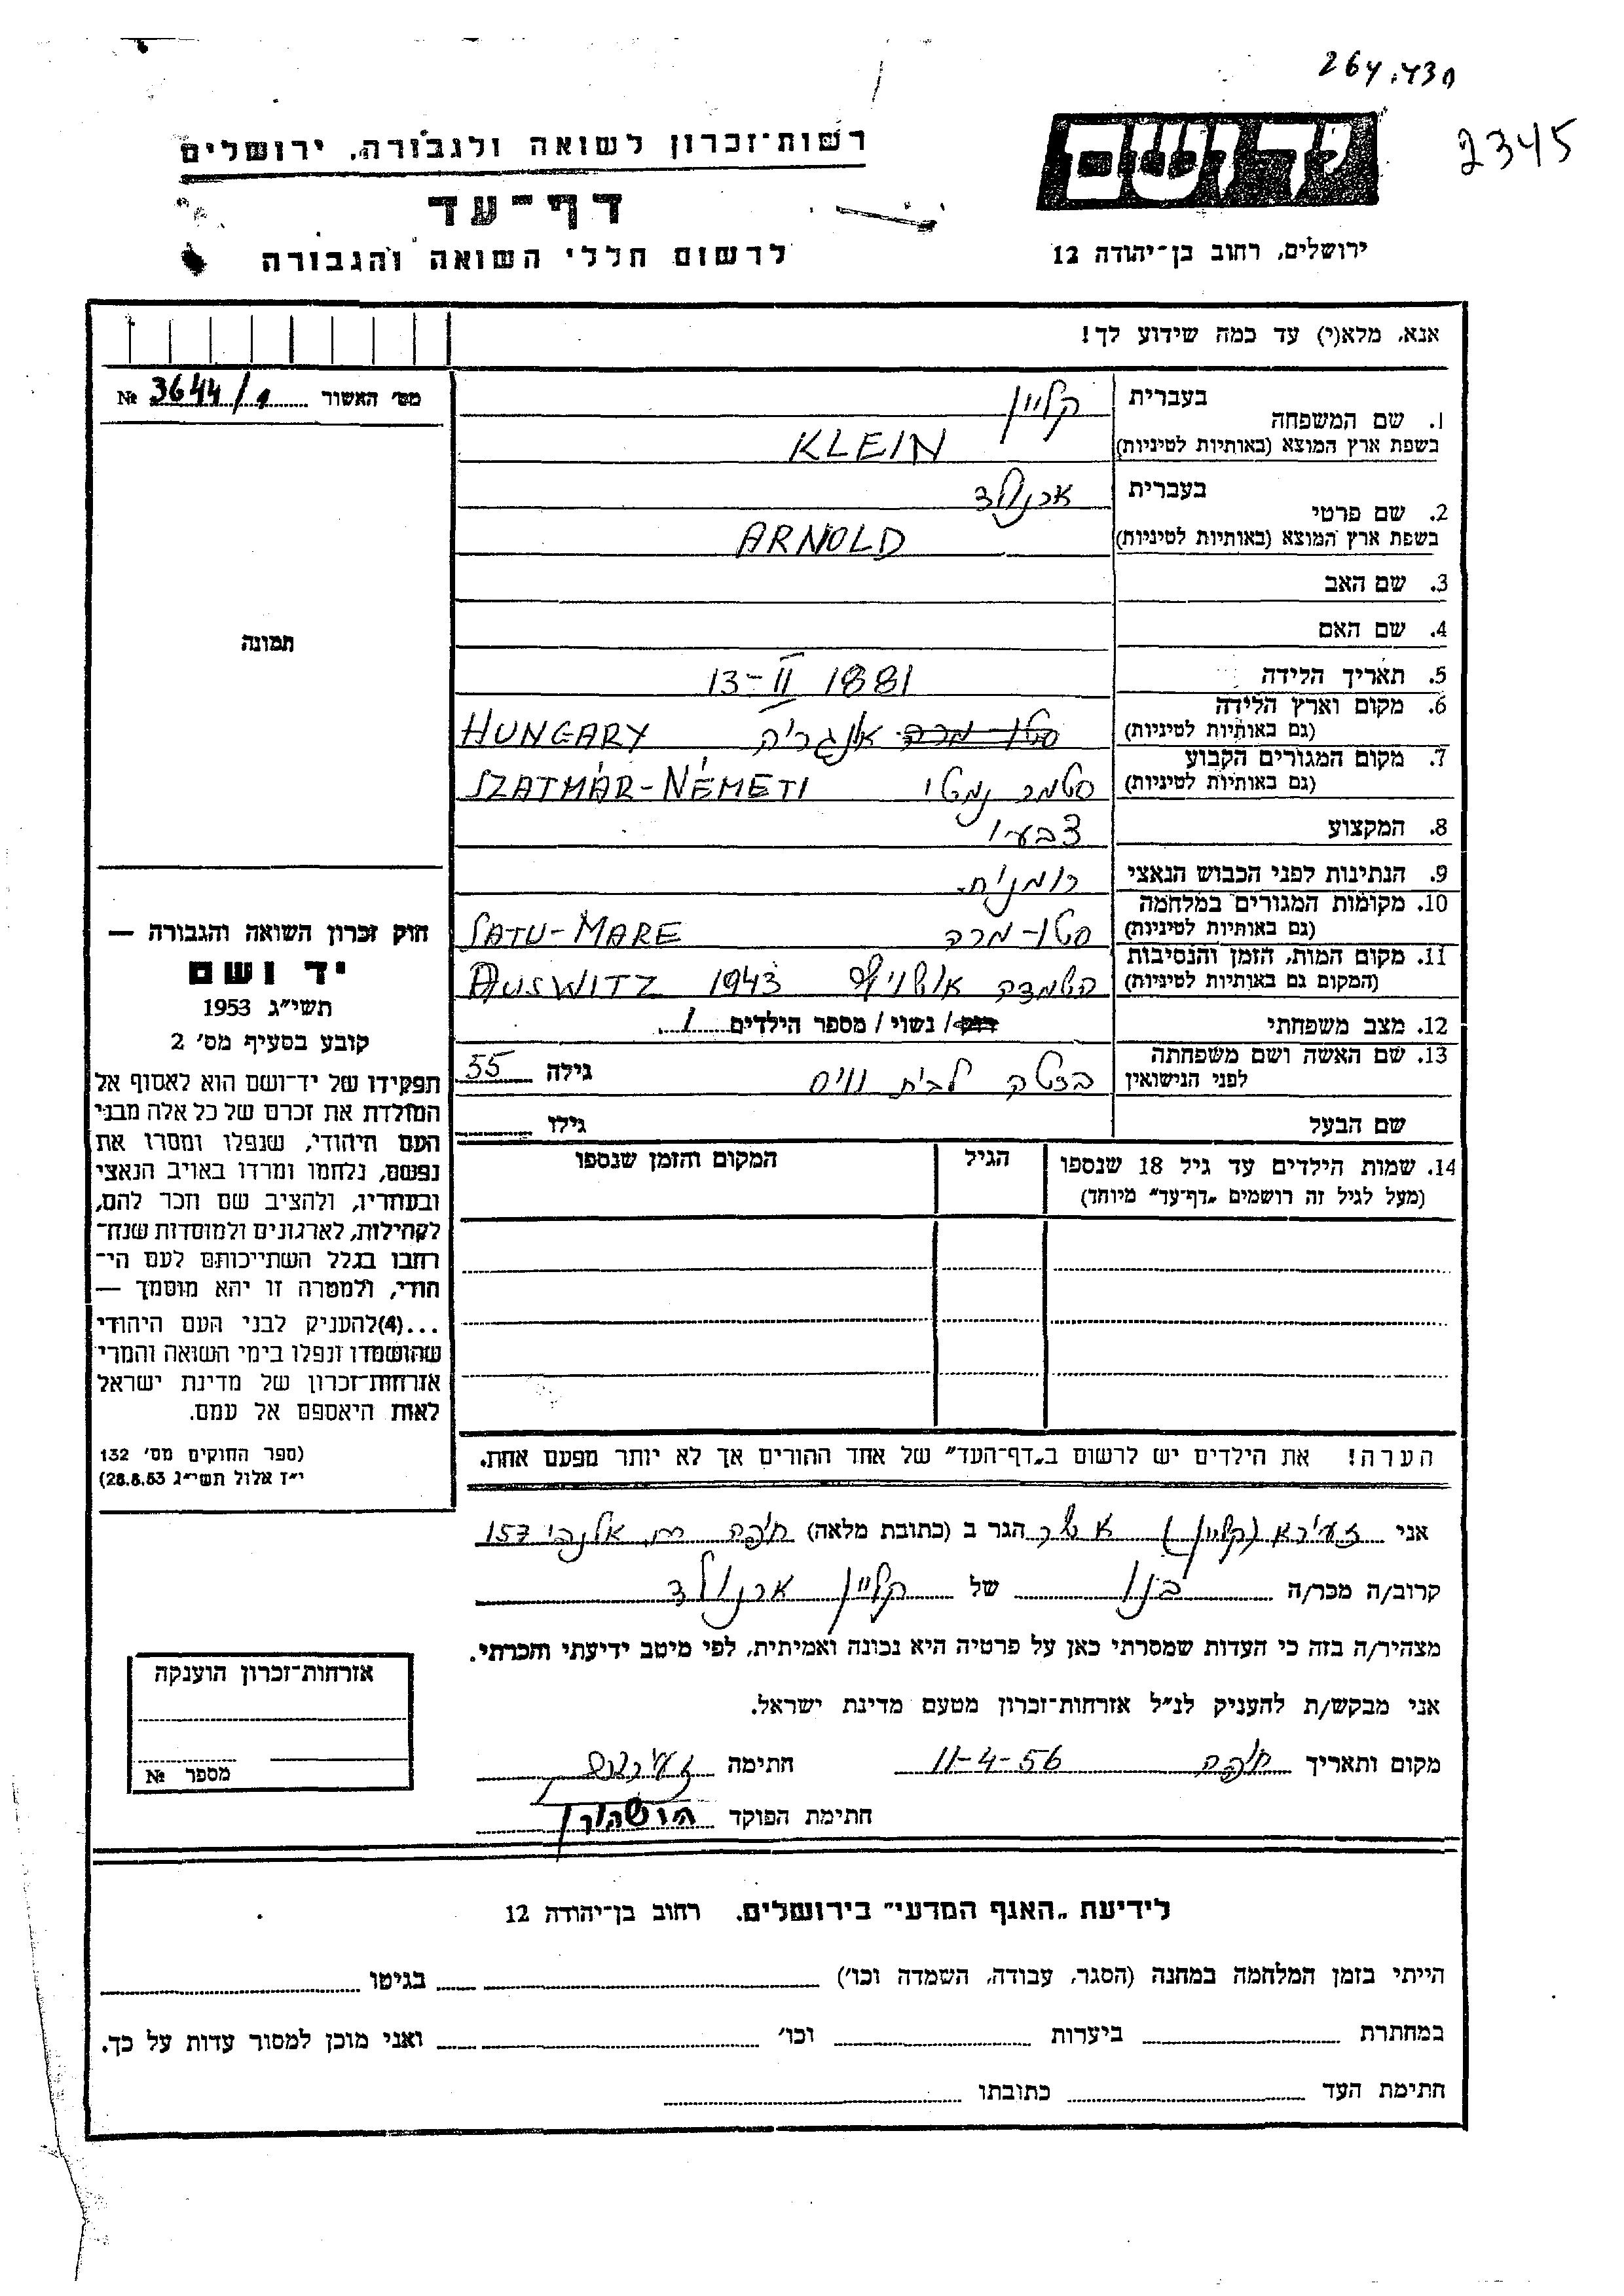 264.430
2345
רשות־זכרון לשואה ולגבורה, ירושלים
דף־עד
לרשום חללי השואה והגבורה
יד ושם
ירושלים, רחוב בן־יהודה 12
אנא, מלא(י) עד כמה שידוע לך!
מס' האשור 3644/1 №
תמונה
1. שם המשפחה בעברית קליין
בשפת ארץ המוצא (באותיות לטיניות) KLEIN
2. שם פרטי בעברית ארנולד
בשפת ארץ המוצא (באותיות לטיניות) ARNOLD
3. שם האב
4. שם האם
5. תאריך הלידה 13-II 1881
6. מקום וארץ הלידה סטו-מרה אונגריה HUNGARY
(גם באותיות לטיניות)
7. מקום המגורים הקבוע סטמר נמטי SZATMÁR-NÉMETI
(גם באותיות לטיניות)
8. המקצוע צבעי
9. הנתינות לפני הכבוש הנאצי רומנית
10. מקומות המגורים במלחמה סטו-מרה SATU-MARE
(גם באותיות לטיניות)
11. מקום המות, הזמן והנסיבות השמדה אושויץ 1943 AUSWITZ
(המקום גם באותיות לטיניות)
12. מצב משפחתי רווק / נשוי / מספר הילדים 1
13. שם האשה ושם משפחתה ברטה לבית ווייס גילה 55
לפני הנישואין
שם הבעל גילו
14. שמות הילדים עד גיל 18 שנספו הגיל המקום והזמן שנספו
(מעל לגיל זה רושמים „דף־עד" מיוחד)
הערה! את הילדים יש לרשום ב„דף־העד" של אחד ההורים אך לא יותר מפעם אחת.
חוק זכרון השואה והגבורה —
יד ושם
תשי"ג 1953
קובע בסעיף מס' 2
תפקידו של יד־ושם הוא לאסוף אל
המולדת את זכרם של כל אלה מבני
העם היהודי, שנפלו ומסרו את
נפשם, נלחמו ומרדו באויב הנאצי
ובעוזריו, ולהציב שם וזכר להם,
לקהילות, לארגונים ולמוסדות שנח־
רבו בגלל השתייכותם לעם הי־
הודי, ולמטרה זו יהא מוסמך —
...(4) להעניק לבני העם היהודי
שהושמדו ונפלו בימי השואה והמרי
אזרחות־זכרון של מדינת ישראל
לאות היאספם אל עמם.
(ספר החוקים מס' 132
י"ז אלול תשי"ג 28.8.53)
אני זעירא (קליין) אשר הגר ב (כתובת מלאה) חיפה אלנבי 157
קרוב/ה מכר/ה בנו של קליין ארנולד
מצהיר/ה בזה כי העדות שמסרתי כאן על פרטיה היא נכונה ואמיתית, לפי מיטב ידיעתי והכרתי.
אני מבקש/ת להעניק לנ"ל אזרחות־זכרון מטעם מדינת ישראל.
מקום ותאריך חיפה 11-4-56 חתימה
חתימת הפוקד
אזרחות־זכרון הוענקה
מספר №
לידיעת „האגף המדעי" בירושלים, רחוב בן־יהודה 12
הייתי בזמן המלחמה במחנה (הסגר, עבודה, השמדה וכו') בגיטו
במחתרת ביערות וכו' ואני מוכן למסור עדות על כך.
חתימת העד כתובתו